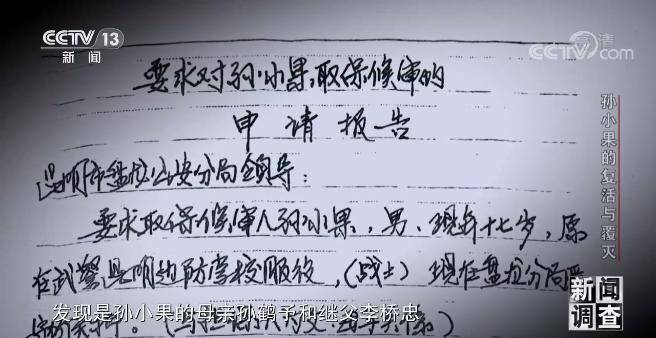 CCTV 13
新闻
清
CCTV.com
要求对孙小果取保候审的
申请报告
昆明市盘龙公安分局领导:
要求取保候审人孙小果,男,现年十七岁,原
在武警昆明边防学校服役,(战士)现在盘龙分局
孙小果的复活与覆灭
新闻
调查
发现是孙小果的母亲孙鹤予和继父李桥忠